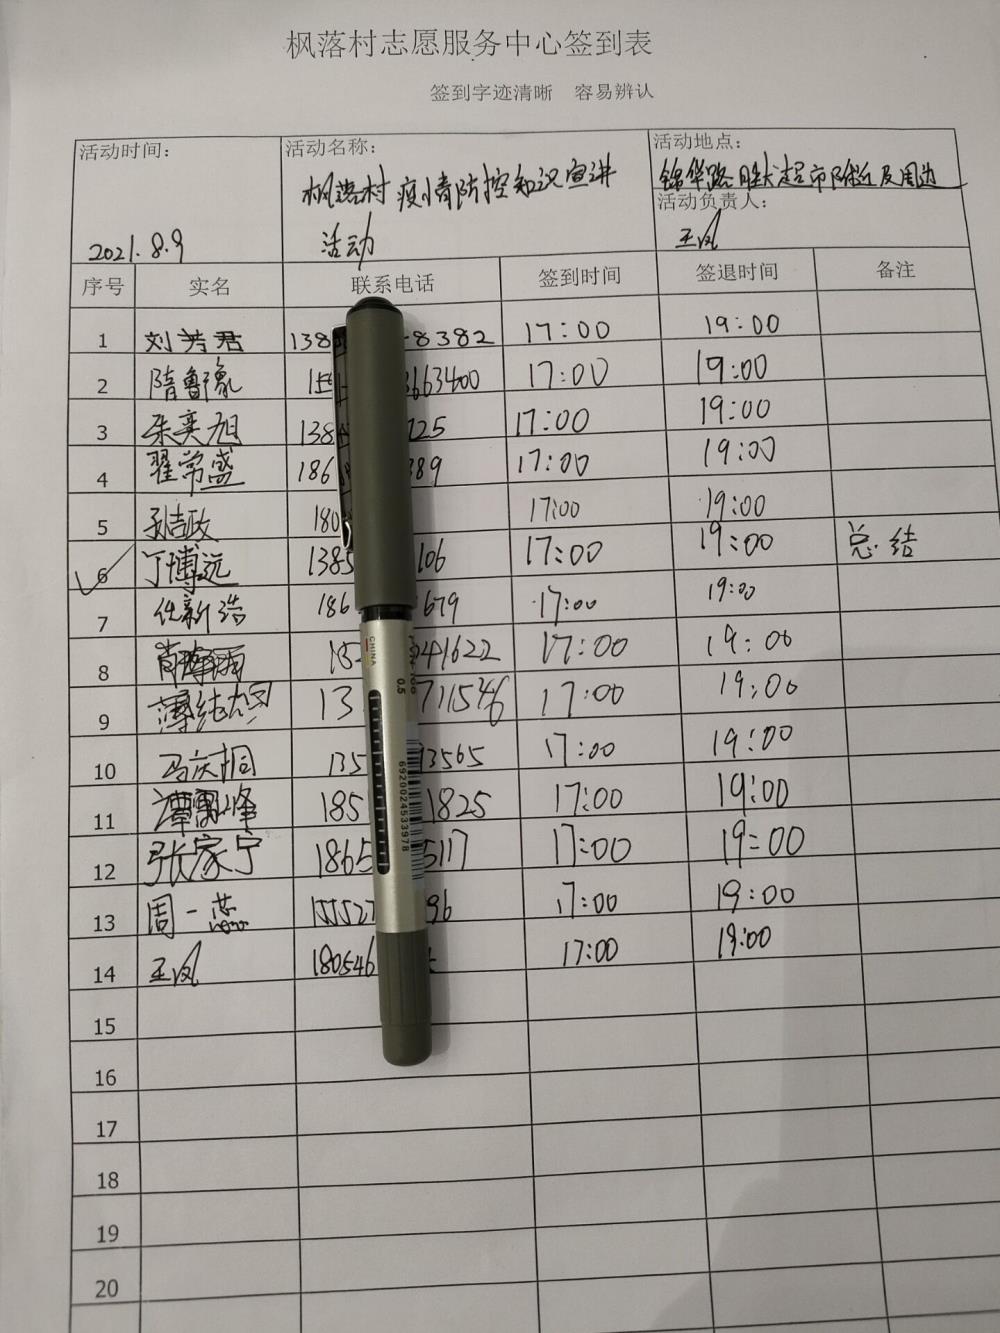 枫落村志愿服务中心签到表
签到字迹清晰 容易辨认
活动时间: 活动名称: 活动地点:
枫落村疫情防控知识宣讲 锦华路胜大超市附近及周边
活动负责人:
2021.8.9 活动 王凤
序号 实名 联系电话 签到时间 签退时间 备注
1 刘芳君 138 8382 17:00 19:00
2 隋鲁豫 15 663400 17:00 19:00
3 朱奕旭 138 725 17:00 19:00
4 翟常盛 186 389 17:00 19:00
5 孙吉政 180 17:00 19:00
6 丁博远 1385 106 17:00 19:00 总结
7 任新浩 186 1679 17:00 19:00
8 152 241622 17:00 19:00
9 薄纯 13 711546 17:00 19:00
10 冯庆桐 135 73565 17:00 19:00
11 谭 峰 185 1825 17:00 19:00
12 张家宁 1865 5117 17:00 19:00
13 周一蕊 155527 96 17:00 19:00
14 王凤 180546 17:00 19:00
15
16
17
18
19
20
CHINA
0.5
6920024533978